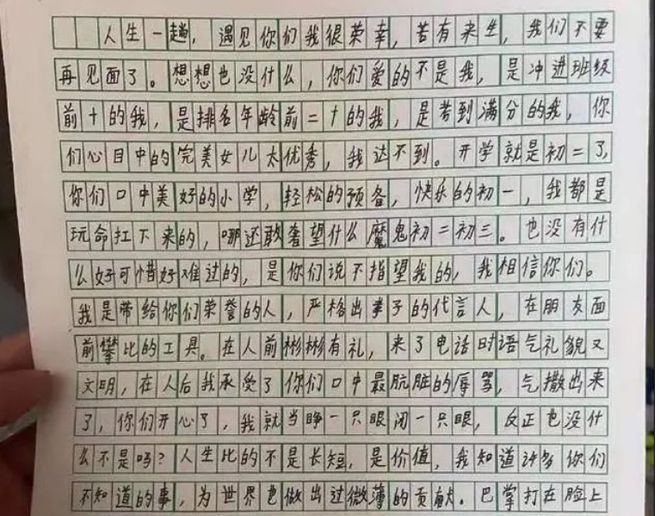 人生一趟，遇见你们我很荣幸，若有来生，我们不要
再见面了。想想也没什么，你们爱的不是我，是冲进班级
前十的我，是排名年龄前二十的我，是考到满分的我，你
们心目中的完美女儿太优秀，我达不到。开学就是初二了，
你们口中美好的小学，轻松的预备，快乐的初一，我都是
玩命扛下来的，哪还敢奢望什么魔鬼初二初三。也没有什
么好可惜好难过的，是你们说不指望我的，我相信你们。
我是带给你们荣誉的人，严格出孝子的代言人，在朋友面
前攀比的工具。在人前彬彬有礼，来了电话时语气礼貌又
文明，在人后我承受了你们口中最肮脏的辱骂，气撒出来
了，你们开心了，我就当睁一只眼闭一只眼，反正也没什
么不是吗？人生比的不是长短，是价值，我知道许多你们
不知道的事，为世界也做出过微薄的贡献。巴掌打在脸上